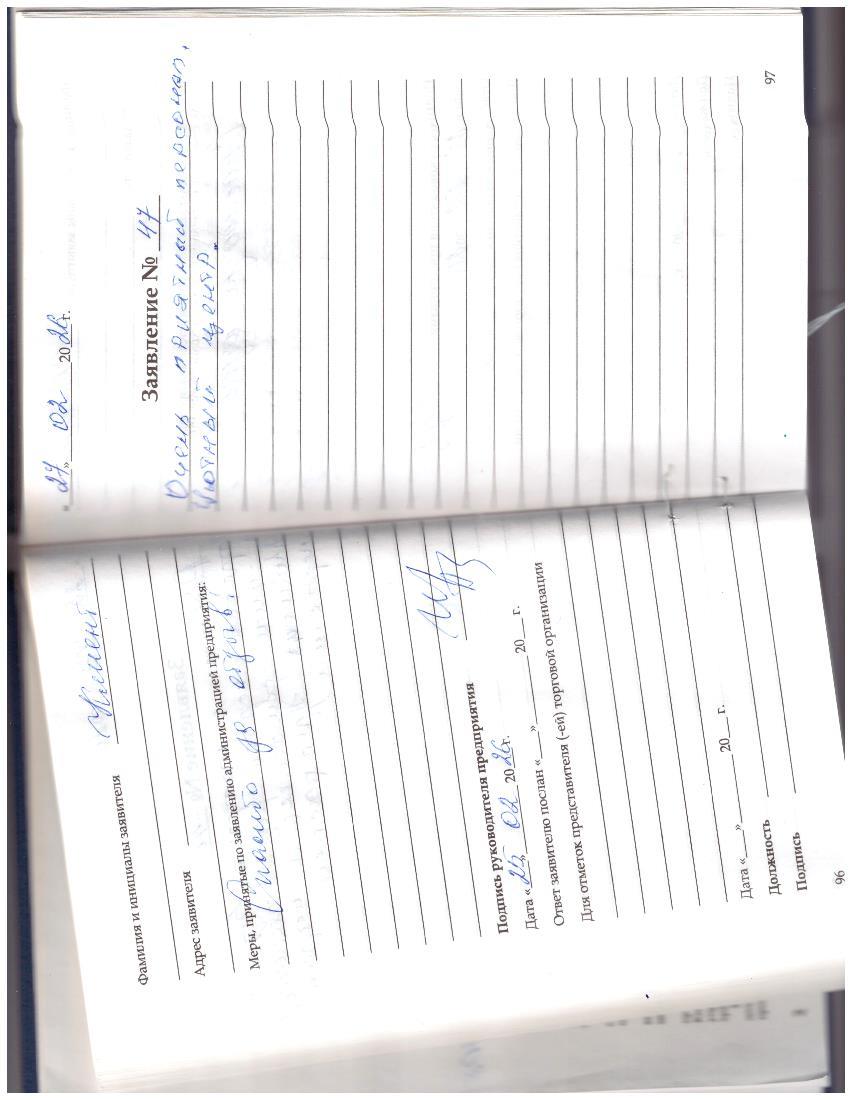 Фамилия и инициалы заявителя Клиент
Адрес заявителя
Меры, принятые по заявлению администрацией предприятия:
Спасибо за отзыв!
Подпись руководителя предприятия
Дата «25» 02 2026г.
Ответ заявителю послан «___» ______ 20__ г.
Для отметок представителя (-ей) торговой организации
Дата «___» ______ 20__ г.
Должность
Подпись
96
«27» 02 2026г.
Заявление № 47
Очень приятный персонал.
Уютный центр.
97